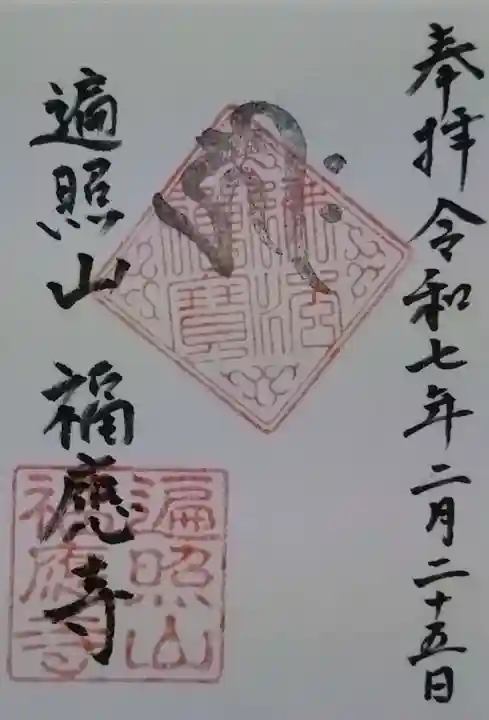 奉拝 令和七年二月二十五日
遍照山 福應寺
佛法僧寳
遍照山
福應寺